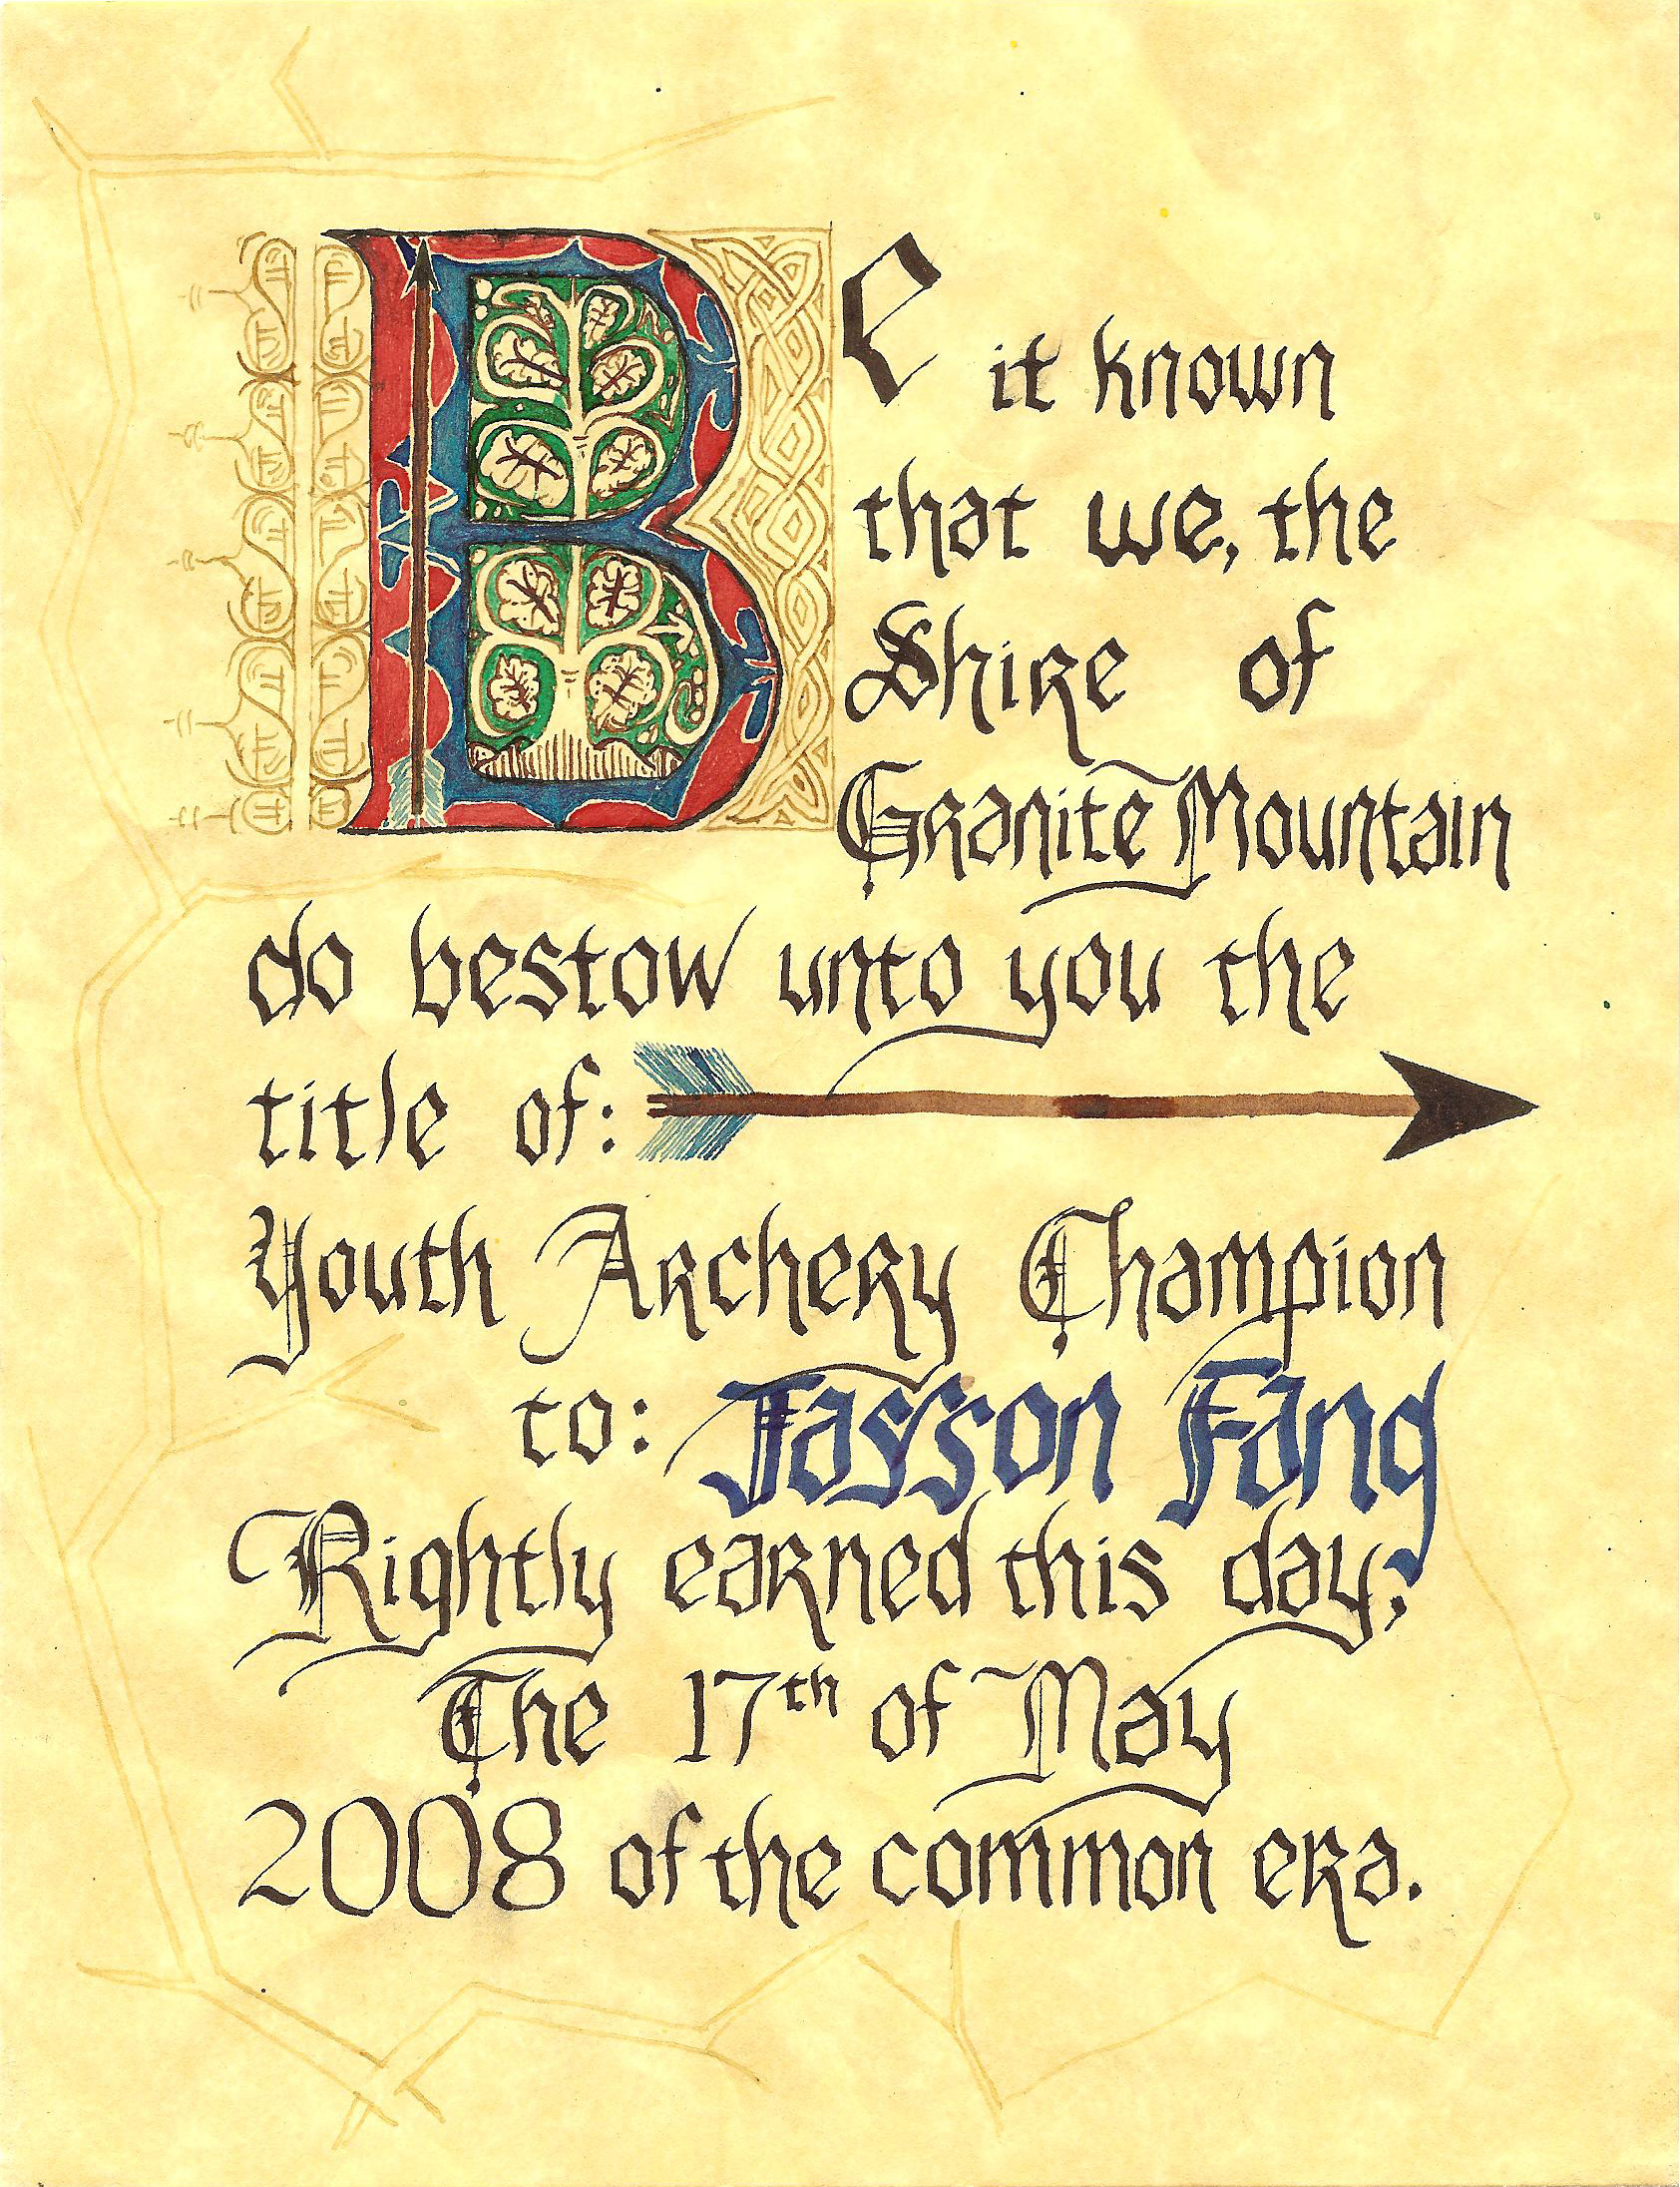 Be it known
that we, the
Shire of
Granite Mountain
do bestow unto you the
title of:
Youth Archery Champion
to: Jasson Fang
Rightly earned this day;
The 17th of May
2008 of the common era.